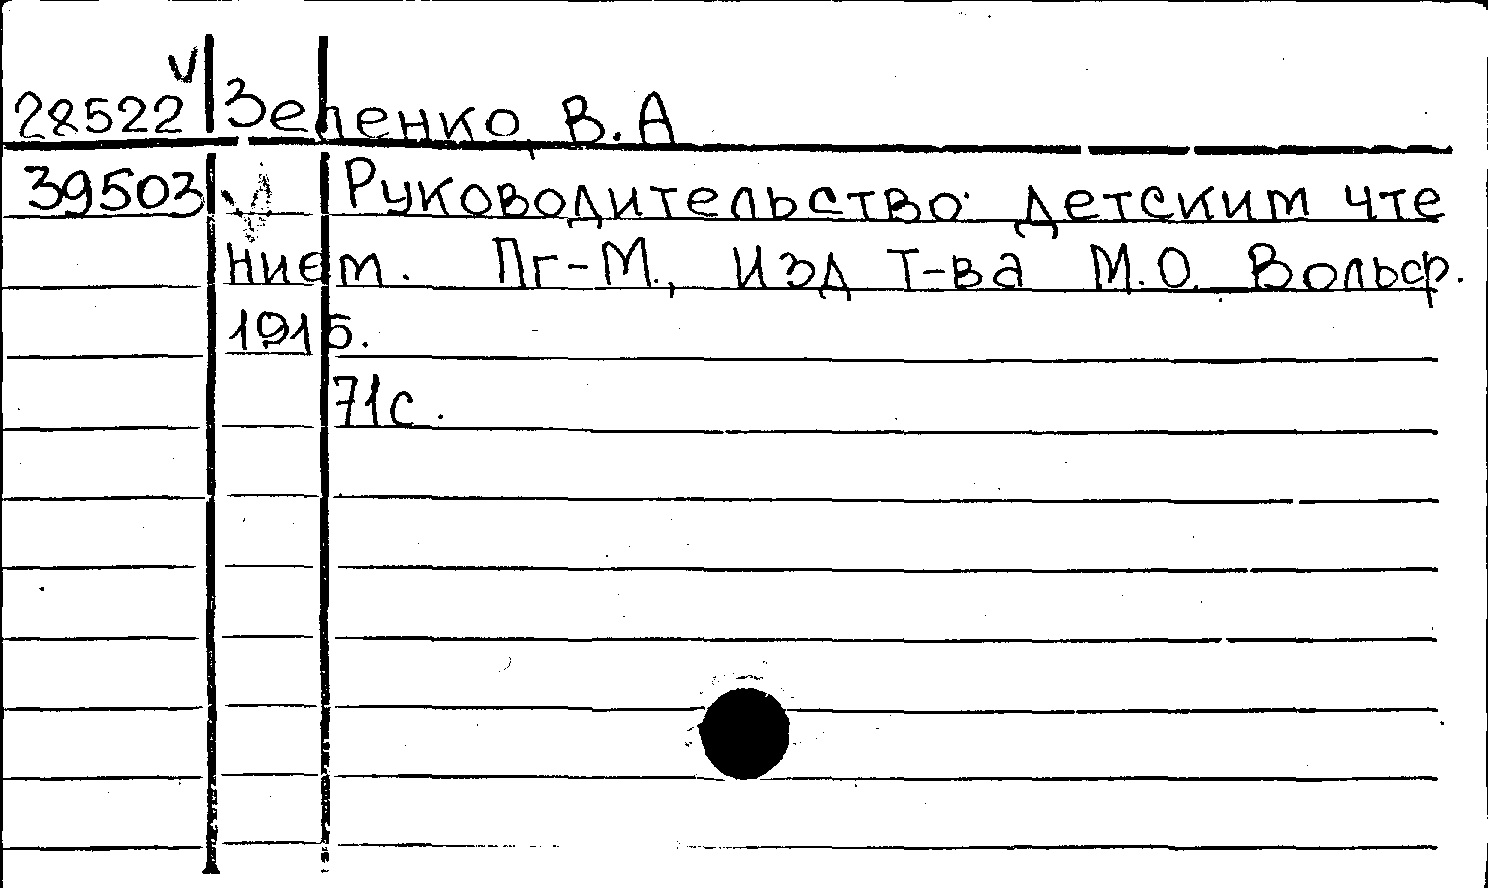 28522 Зеленко, В. А
39503 Руководительство детским чте
нием. Пг-М., Изд Т-ва М.О. Вольф.
1915.
71с.